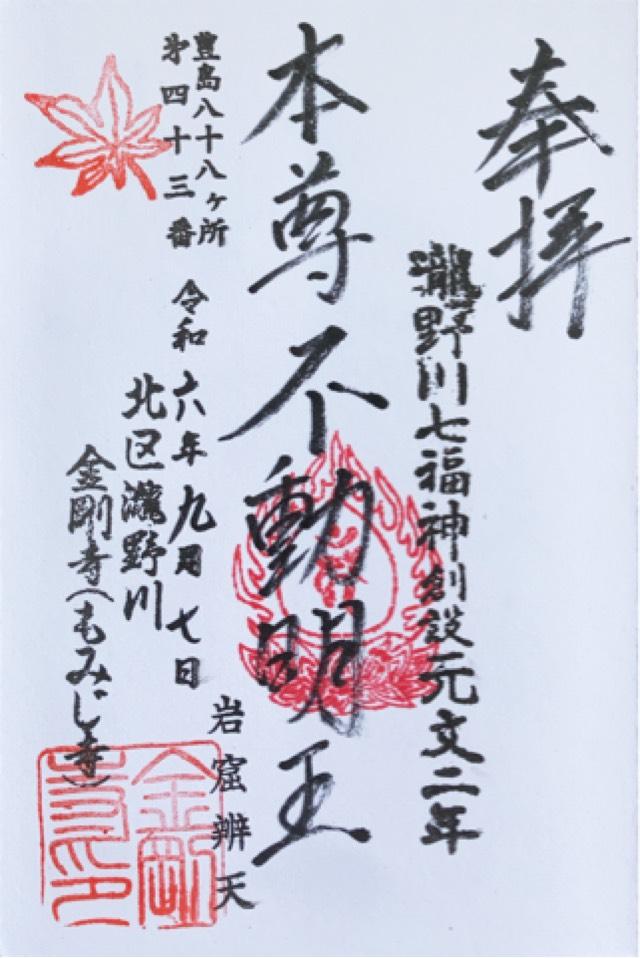 奉拝
瀧野川七福神創設元文二年
本尊不動明王
岩窟辨天
豊島八十八ヶ所
第四十三番
令和六年九月七日
北区瀧野川
金剛寺(もみじ寺)
金剛
寺印